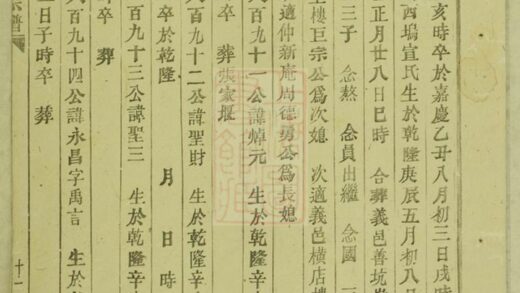 亥時卒於嘉慶乙丑八月初三日戌時
西塢宣氏生於乾隆庚辰五月初八日
正月廿八日巳時 合葬義邑善坑
三子 念熬 念員出繼 念國
上樓巨宗公爲次媳 次適義邑橫店樓
適仲新庵周德勇公爲長媳
百九十一公諱焯元 生於乾隆辛
卒 葬張家堰
百九十二公諱聖財 生於乾隆辛
卒於乾隆 月 日 時
百九十三公諱聖三 生於乾隆辛
時卒 葬
百九十四公諱永昌字禹言 生於
日子時卒 葬
宗譜
十一